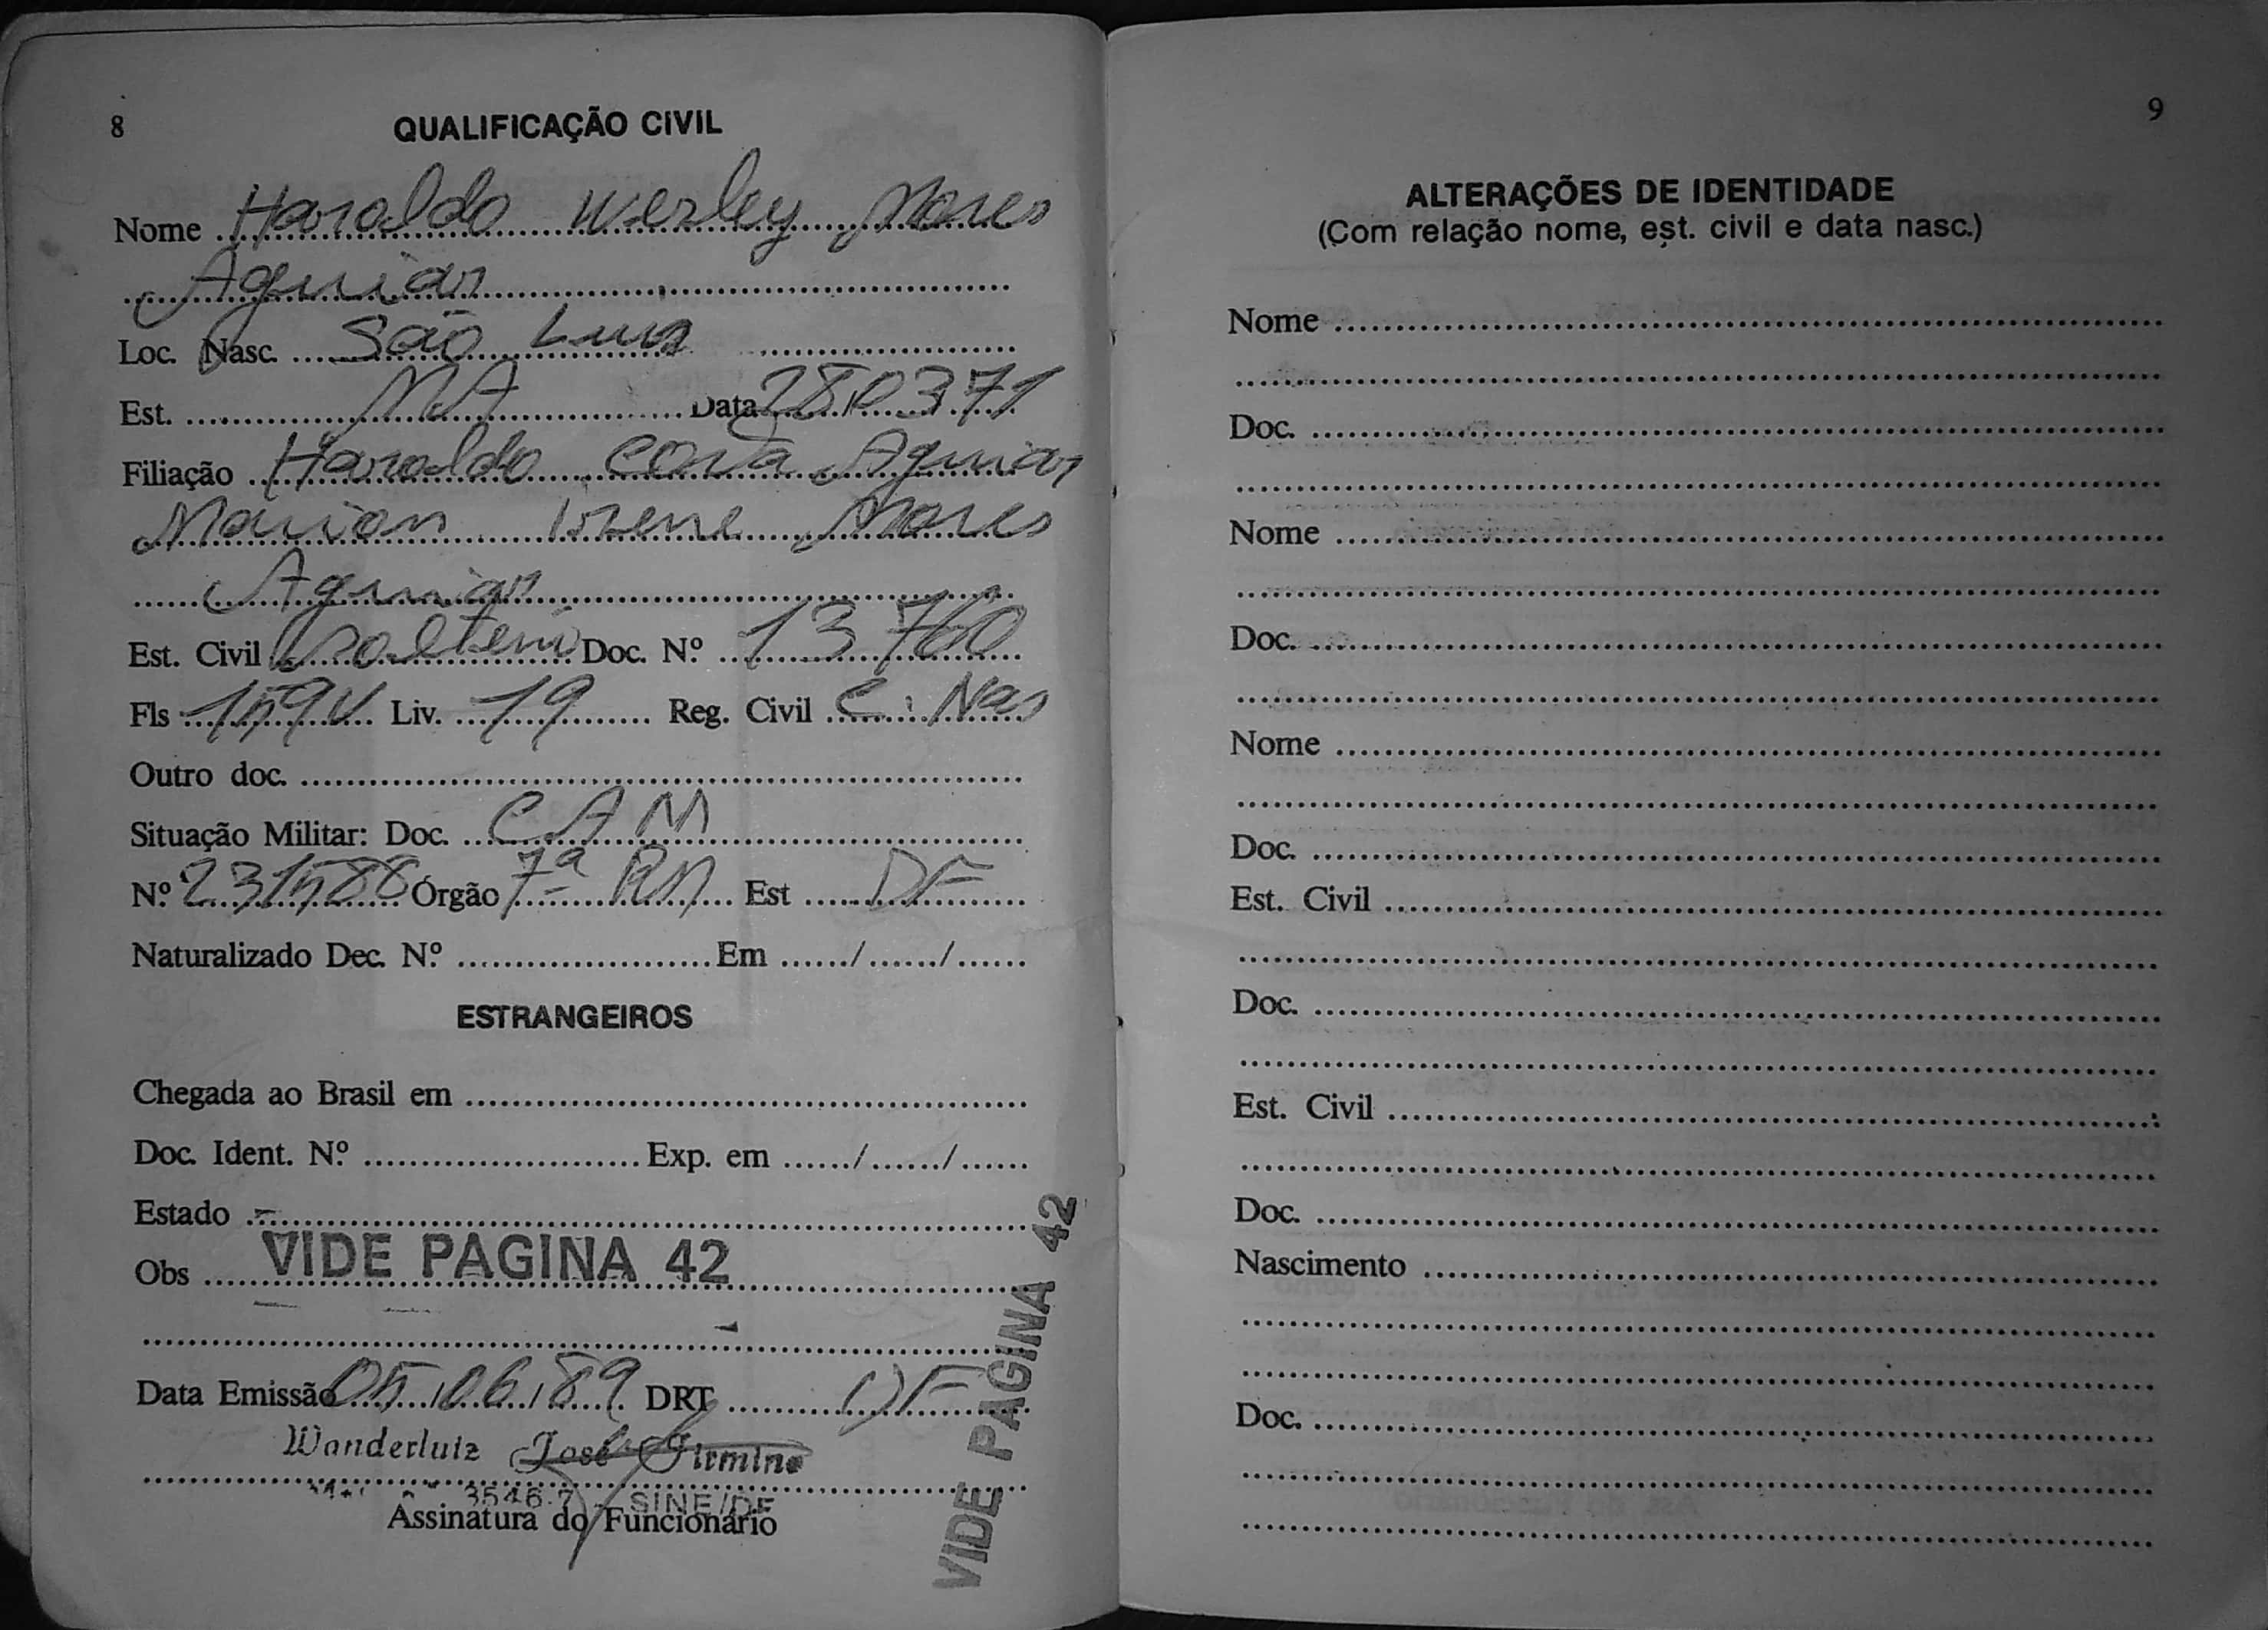 8
QUALIFICAÇÃO CIVIL
Nome Haroldo Werley Mores
Aguiar
Loc. Nasc. São Luis
Est. MA Data 28 03 71
Filiação Haroldo Costa Aguiar
Marion Irene Mores
Aguiar
Est. Civil Solteiro Doc. N.º 13 760
Fls 159V Liv. 19 Reg. Civil C. Nas
Outro doc.
Situação Militar: Doc. CAM
N.º 231588 Órgão 7ª RM Est DF
Naturalizado Dec. N.º Em / /
ESTRANGEIROS
Chegada ao Brasil em
Doc. Ident. N.º Exp. em / /
Estado
Obs VIDE PAGINA 42
Data Emissão 05/06/89 DRT DF
Wanderluiz José Firmino
3546.7 SINE/DF
Assinatura do Funcionário
VIDE PAGINA 42
9
ALTERAÇÕES DE IDENTIDADE
(Com relação nome, est. civil e data nasc.)
Nome
Doc.
Nome
Doc.
Nome
Doc.
Est. Civil
Doc.
Est. Civil
Doc.
Nascimento
Doc.